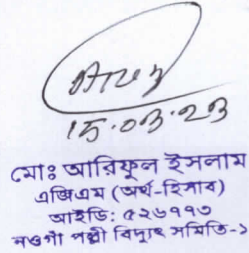 15.03.23
মোঃ আরিফুল ইসলাম
এজিএম (অর্থ-হিসাব)
আইডি: ৫২৬৭৭৩
নওগাঁ পল্লী বিদ্যুৎ সমিতি-১